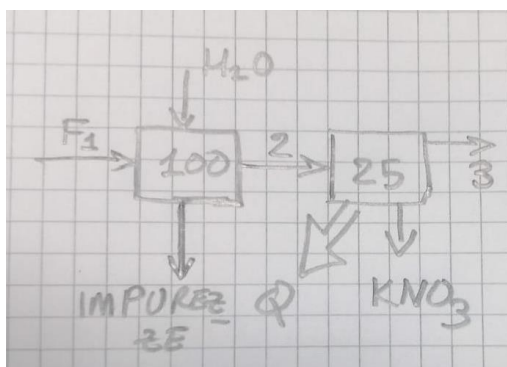 H2O
F1
100
2
25
3
IMPUREZ
ZE
Q
KNO3